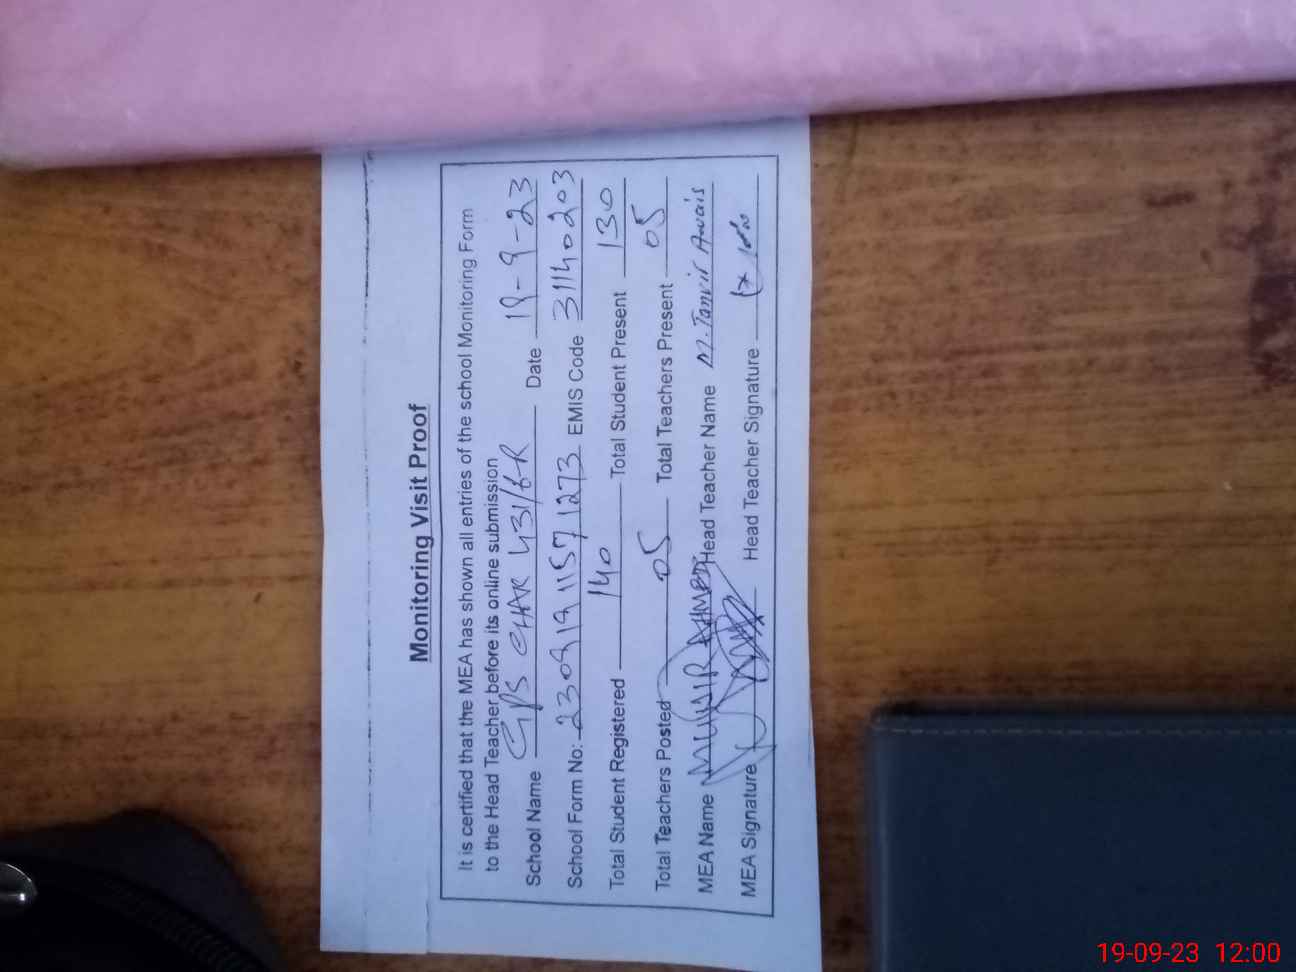 Monitoring Visit Proof
It is certified that the MEA has shown all entries of the school Monitoring Form
to the Head Teacher before its online submission
School Name GPS CHAK 431/6R Date 19-9-23
School Form No: 230919 11571273 EMIS Code 31140203
Total Student Registered 140 Total Student Present 130
Total Teachers Posted 05 Total Teachers Present 05
MEA Name MUNIR AHMED Head Teacher Name M. Tanvir Awais
MEA Signature Head Teacher Signature
19-09-23 12:00